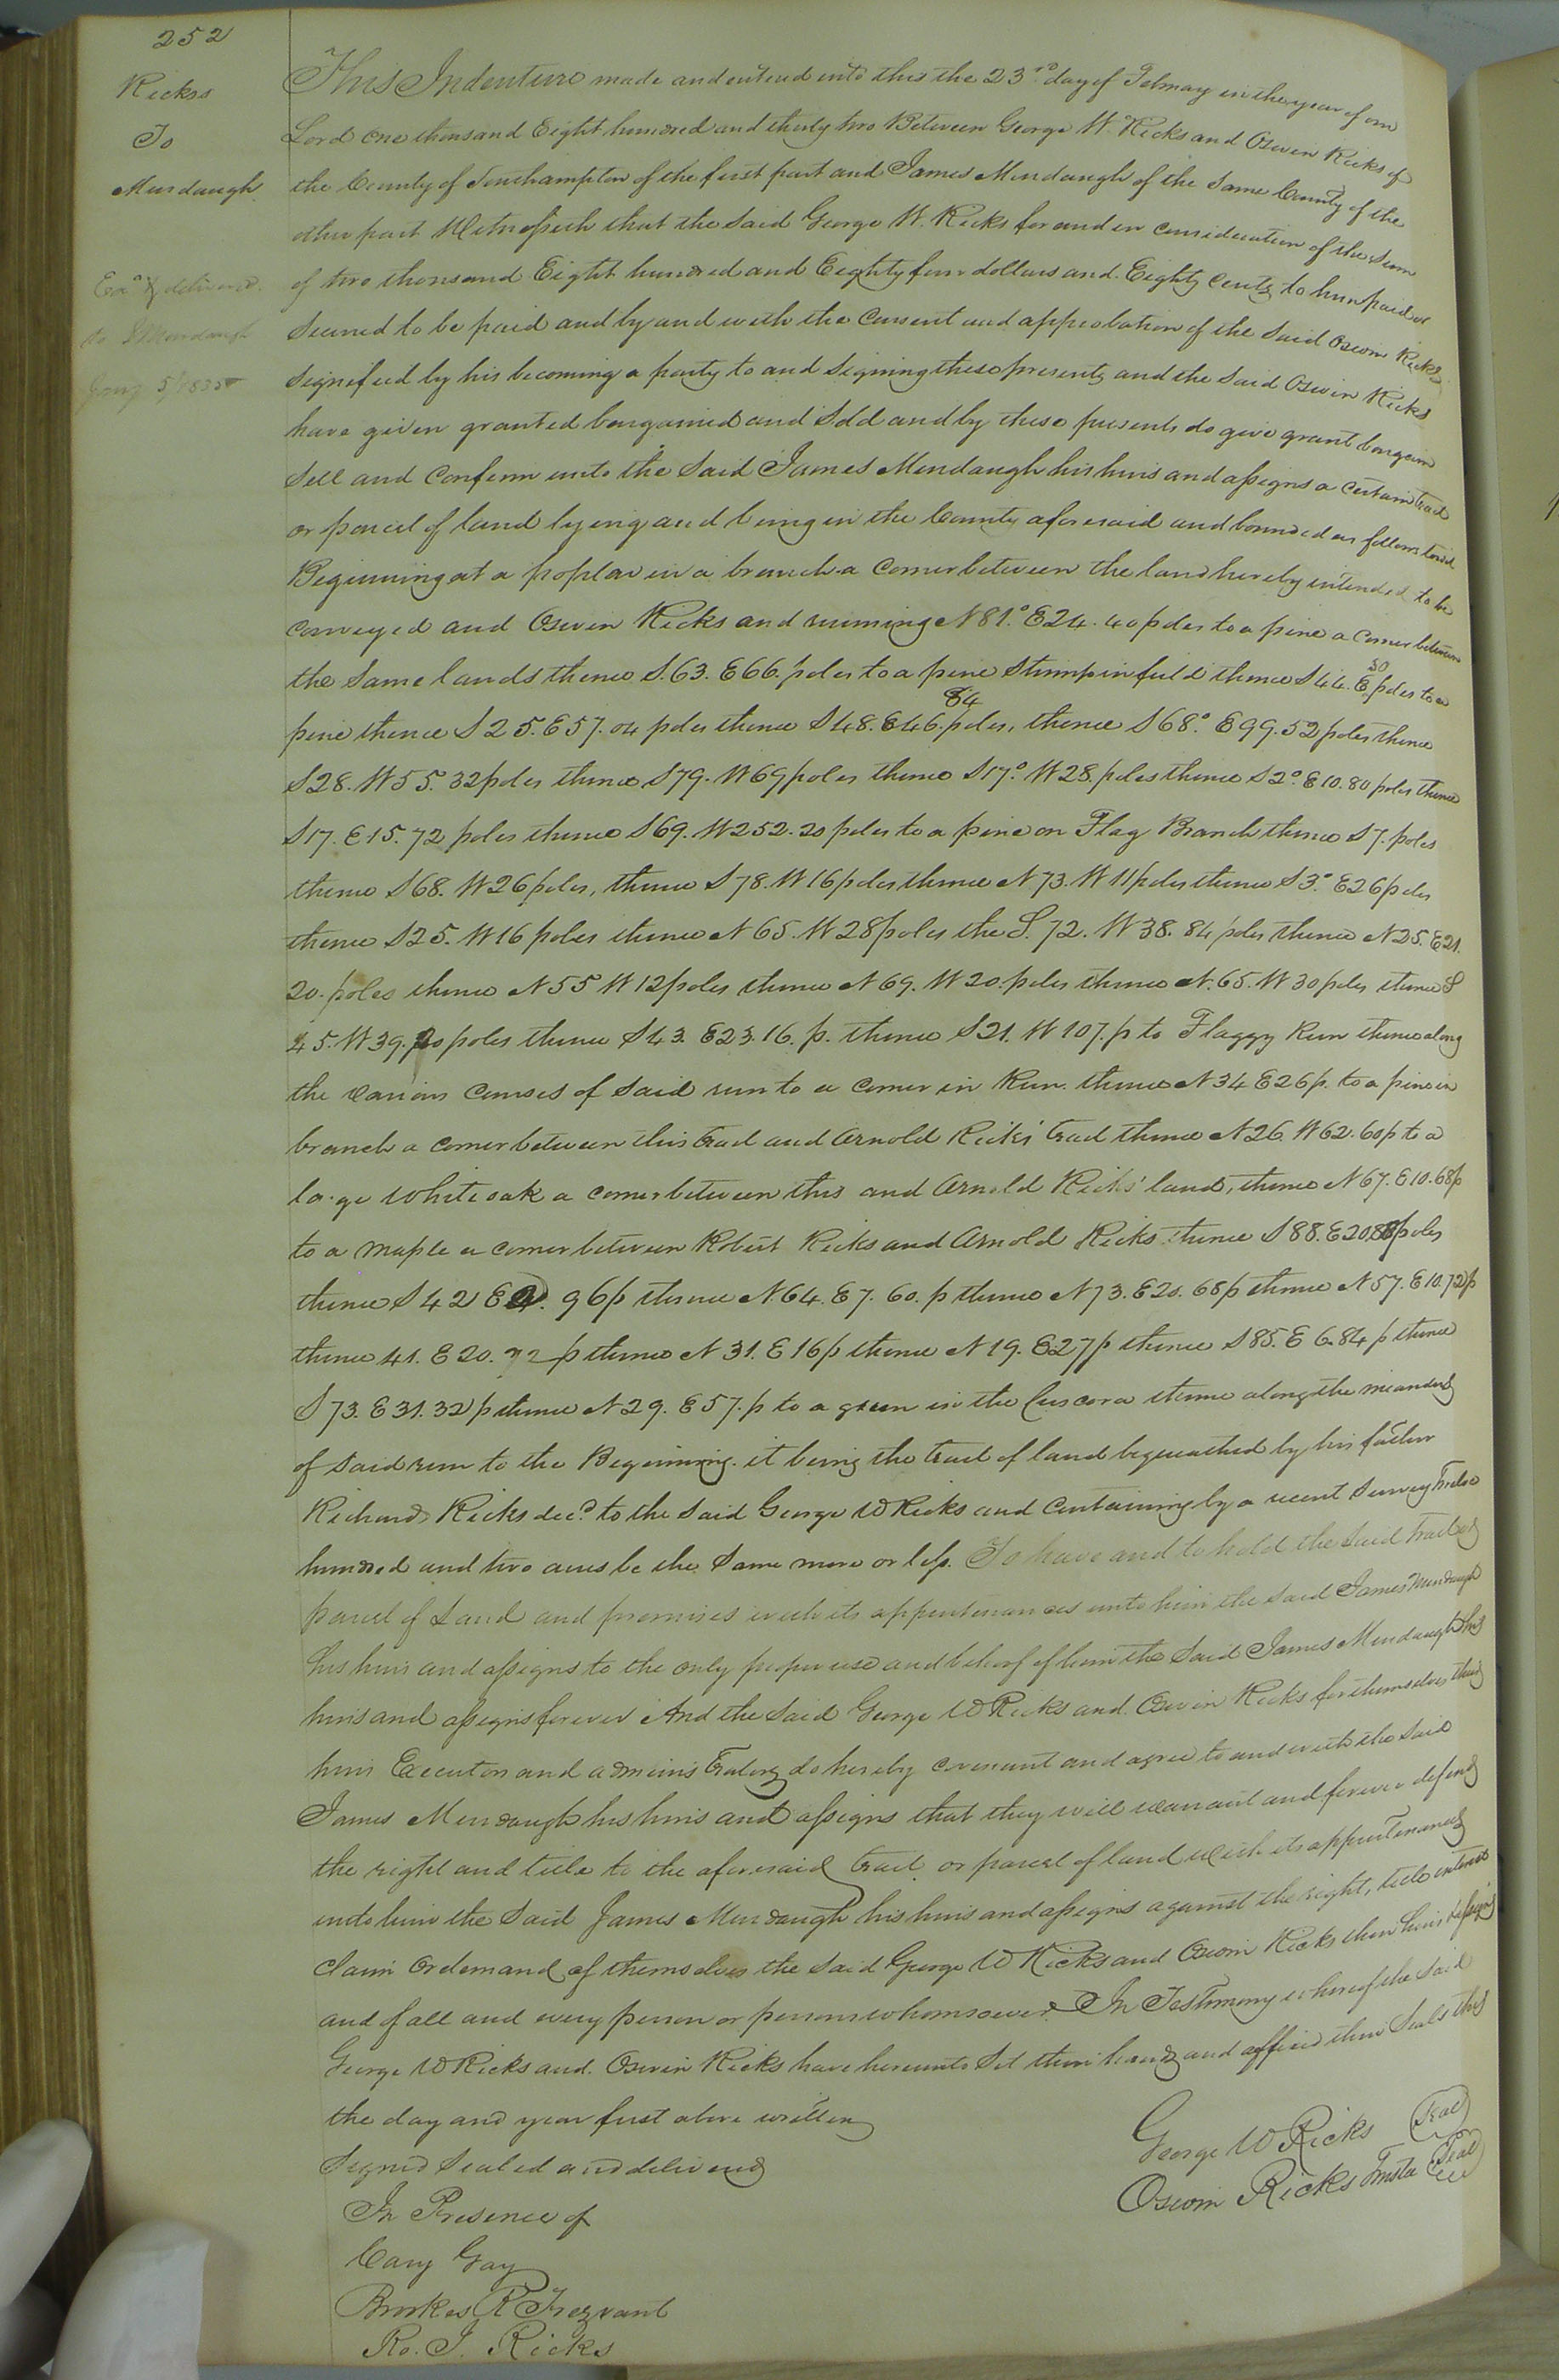 252
Ricks
To
Murdaugh
Exd & delivered
to J Murdaugh
Jany 5 1835
This Indenture made and entered into this the 23rd day of February in the year of our
Lord one thousand Eight hundred and thirty two Between George W. Ricks and Oswin Ricks of
the County of Southampton of the first part and James Murdaugh of the Same County of the
other part Witnesseth that the Said George W. Ricks for and in consideration of the Sum
of two thousand Eight hundred and Eighty four dollars and Eighty Cents to him paid or
Secured to be paid and by and with the Consent and approbation of the Said Oswin Ricks
Signified by his becoming a party to and Signing these presents and the Said Oswin Ricks
have given granted bargained and Sold and by these presents do give grant bargain
Sell and Confirm unto the Said James Murdaugh his heirs and assigns a Certain tract
or parcel of land lying and being in the County aforesaid and bounded as follows towit
Beginning at a poplar in a branch a Corner between the land hereby intended to be
Conveyed and Oswin Ricks and running N 81.° E 24. 40 poles to a pine a Corner between
the Same lands thence S. 63. E 66. poles to a pine Stump in field thence S 44. E 30 poles to a
pine thence S 25. E 57. 04 poles thence S 48. E 46. 84 poles, thence S 68.° E 99. 52 poles thence
S 28. W 55. 32 poles thence S 79. W 69 poles thence S 17.° W 28. poles thence S 2.° E 10. 80 poles thence
S 17. E 15. 72 poles thence S 69. W 252. 20 poles to a pine on Flag Branch thence S 7. poles
thence S 68. W 26 poles, thence S 78. W 16 poles thence N 73. W 11 poles thence S 3.° E 26 poles
thence S 25. W 16 poles thence N 65. W 28 poles the S. 72. W 38. 84 poles thence N 25. E 21.
20. poles thence N 55 W 12 poles thence N 69. W 20. poles thence N. 65. W 30 poles thence S
45. W 39. 20 poles thence S 43. E 23. 16. p. thence S 21. W 107. p to Flaggy Run thence along
the various Courses of Said run to a Corner in Run. thence N 34 E 26 p. to a pine in
branch a corner between this tract and Arnold Ricks' tract thence N 26. W 62. 60 p to a
large White oak a Corner between this and Arnold Ricks' land, thence N 67. E 10. 68 p
to a maple a corner between Robert Ricks and Arnold Ricks thence S 88. E 20. 88 poles
thence S 42 E . 96 p thence N. 64. E 7. 60. p thence N 73. E 20. 68 p thence N 57. E 10. 72 p
thence 41. E 20. 72 p thence N 31. E 16 p thence N 19. E 27 p thence S 85. E 6. 84 p thence
S 73. E 31. 32 p thence N 29. E 57. p to a gum in the Cuscora thence along the meanders
of Said run to the Beginning. it being the tract of land bequeathed by his father
Richard Ricks decd. to the Said George W Ricks and Containing by a recent Survey twelve
hundred and two acres be the Same more or less. To have and to hold the Said tract or
parcel of Land and premises with its appurtenances unto him the Said James Murdaugh
his heirs and assigns to the only proper use and behoof of him the Said James Murdaugh his
heirs and assigns forever And the Said George W Ricks and Oswin Ricks for themselves their
heirs Executors and administrators do hereby covenant and agree to and with the Said
James Murdaugh his heirs and assigns that they will warrant and forever defend
the right and title to the aforesaid tract or parcel of land with its appurtenances
unto him the Said James Murdaugh his heirs and assigns against the right, title interest
claim or demand of themselves the Said George W Ricks and Oswin Ricks their heirs & assigns
and of all and every person or persons whomsoever. In Testimony whereof the Said
George W Ricks and Oswin Ricks have hereunto Set their hands and affixed their Seals this
the day and year first above written
Signed Sealed and delivered
In Presence of
Cary Gay
Brookes R Trezvant
Ro. J. Ricks
George W Ricks (Seal)
Oswin Ricks Trustee (Seal)